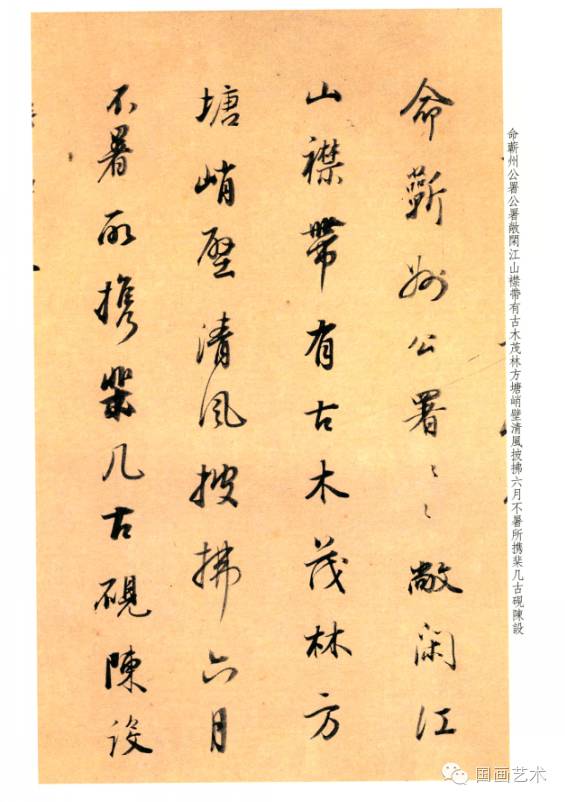 命蘄州公署〻〻敞閑江
山襟帶有古木茂林方
塘峭壁清風披拂六月
不暑所携棐几古硯陳設
命蘄州公署公署敞閑江山襟帶有古木茂林方塘峭壁清風披拂六月不暑所携棐几古硯陳設
国画艺术